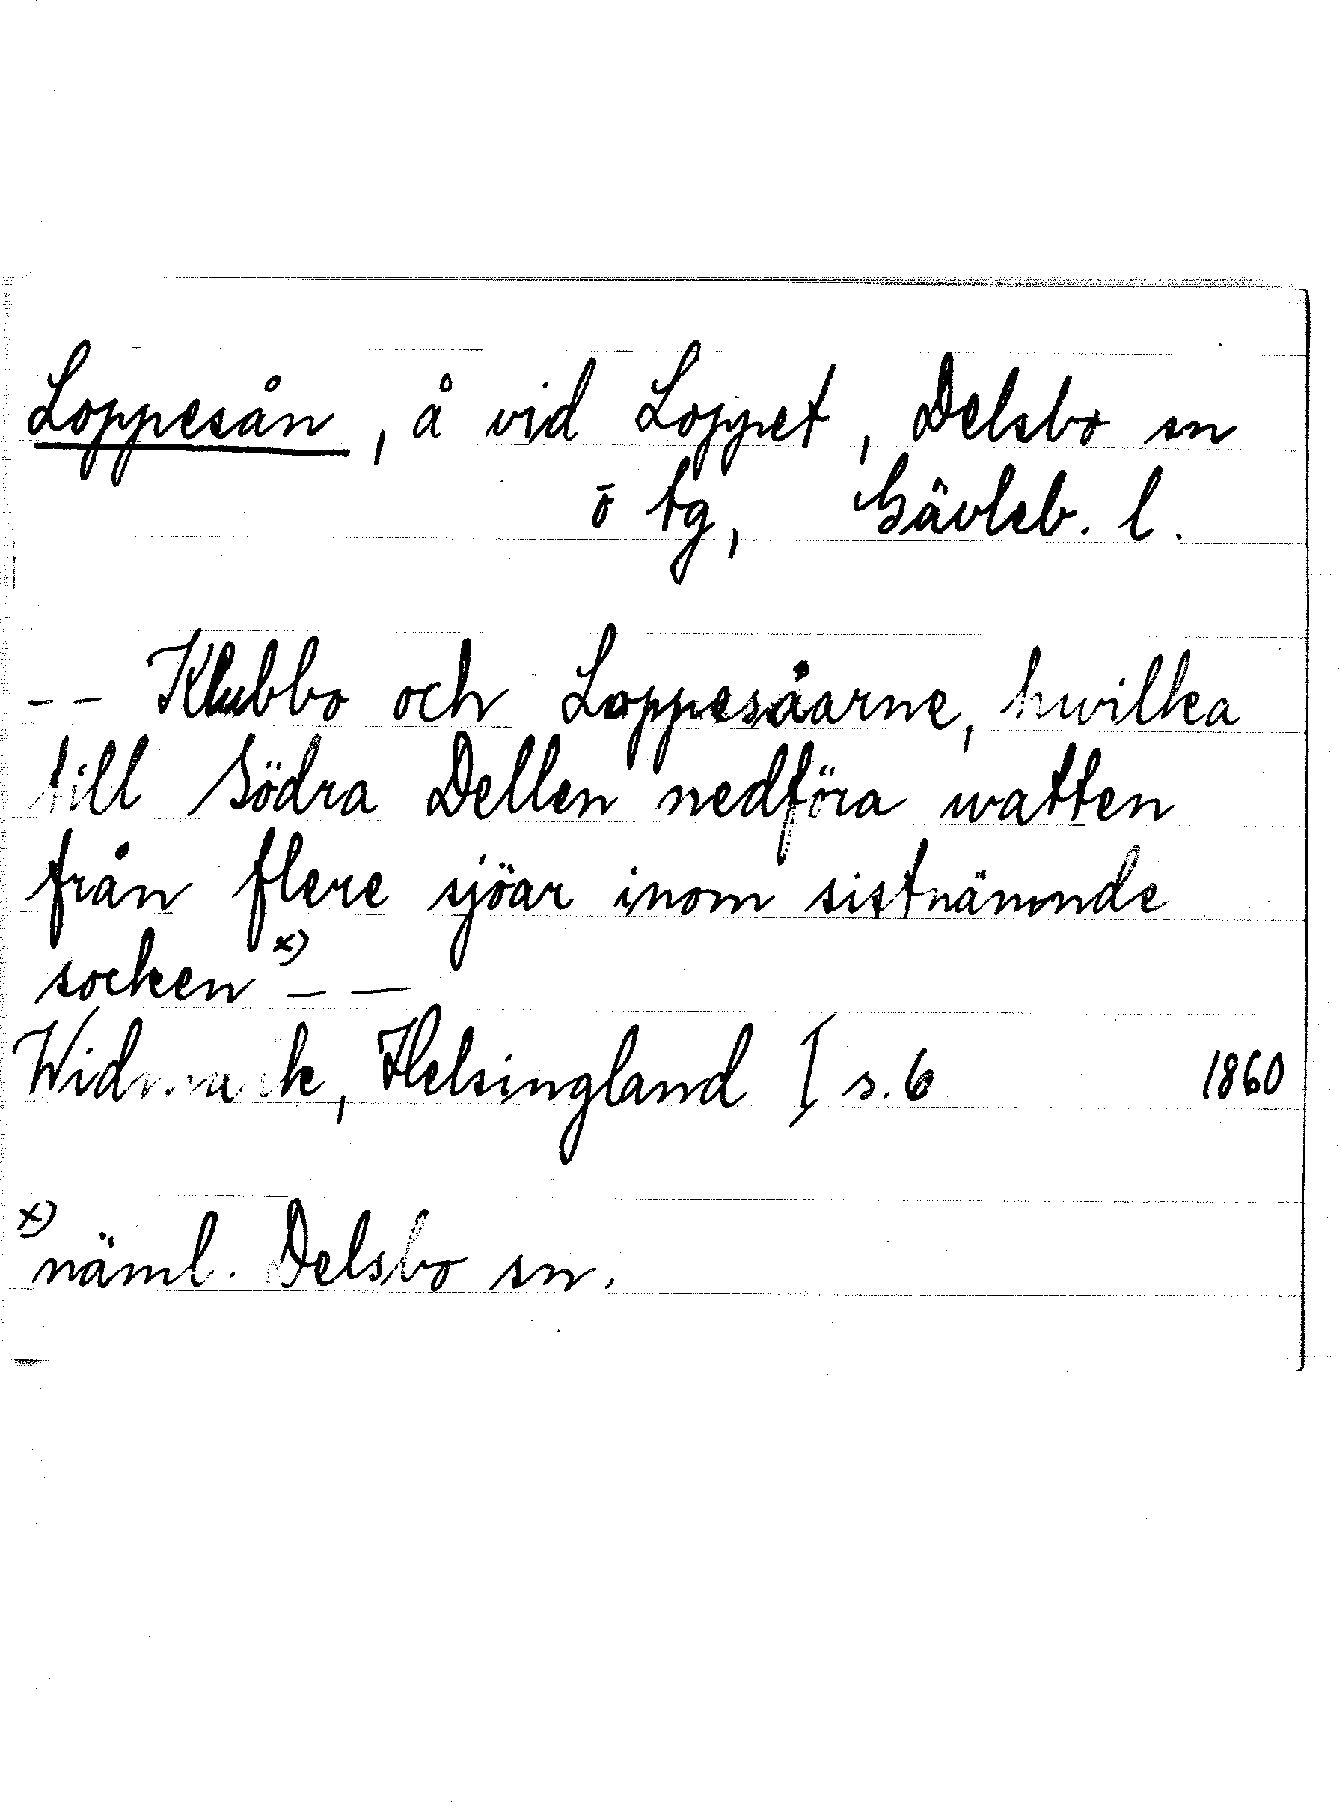 Loppesån, å vid Loppet, Delsbo sn
ö tg, Gävleb. l.
-- Klubbo och Loppesåarne, hwilka
till Södra Dellen nedföra watten
från flere sjöar inom sistnämnde
socken x) - -
Widmark, Helsingland I s. 6 1860
x) näml. Delsbo sn.